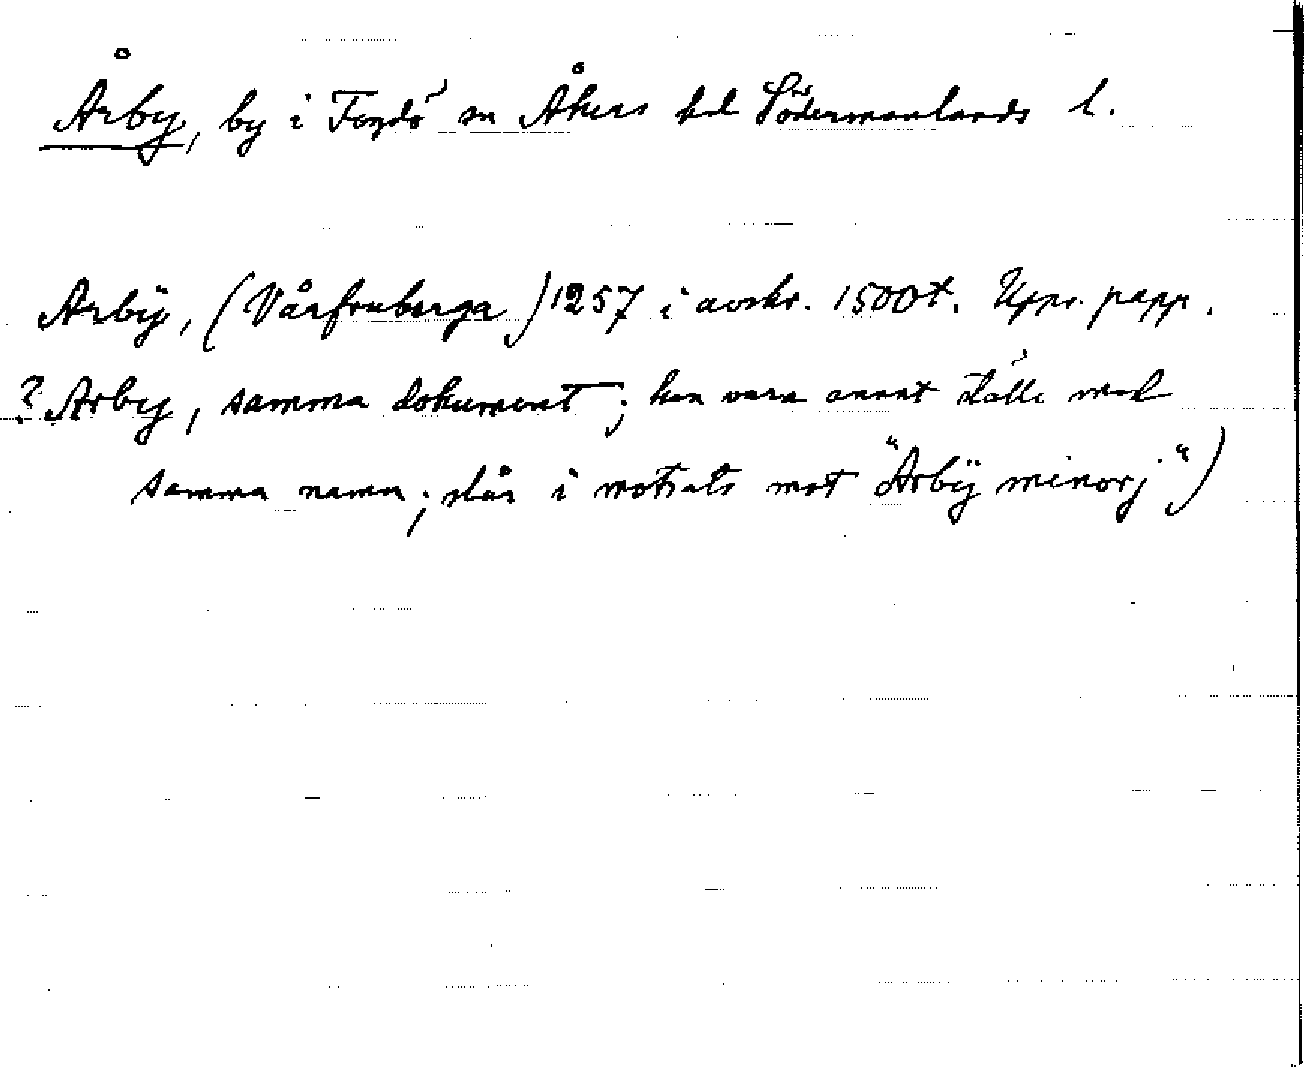 Årby, by i Fogdö sn Åkers hd Södermanlands l.
Arbÿ, (Vårfruberga) 1257 i avskr. 1500t. Uppr. papp.
? Arby, samma dokument; kan vara annat ställe med
samma namn; står i motsats mot "Arbÿ minorj")